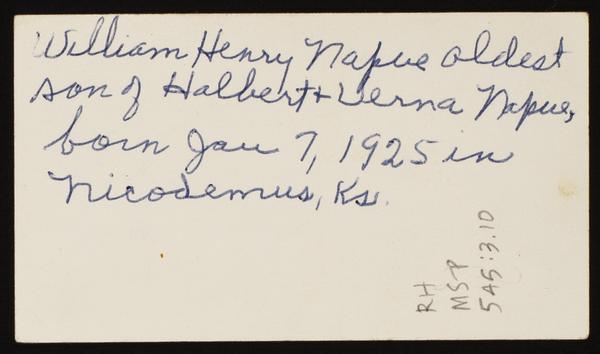 William Henry Napue oldest
son of Halbert + Verna Napue,
born Jan 7, 1925 in
Nicodemus, Ks.
RH
MS-P
545:3.10